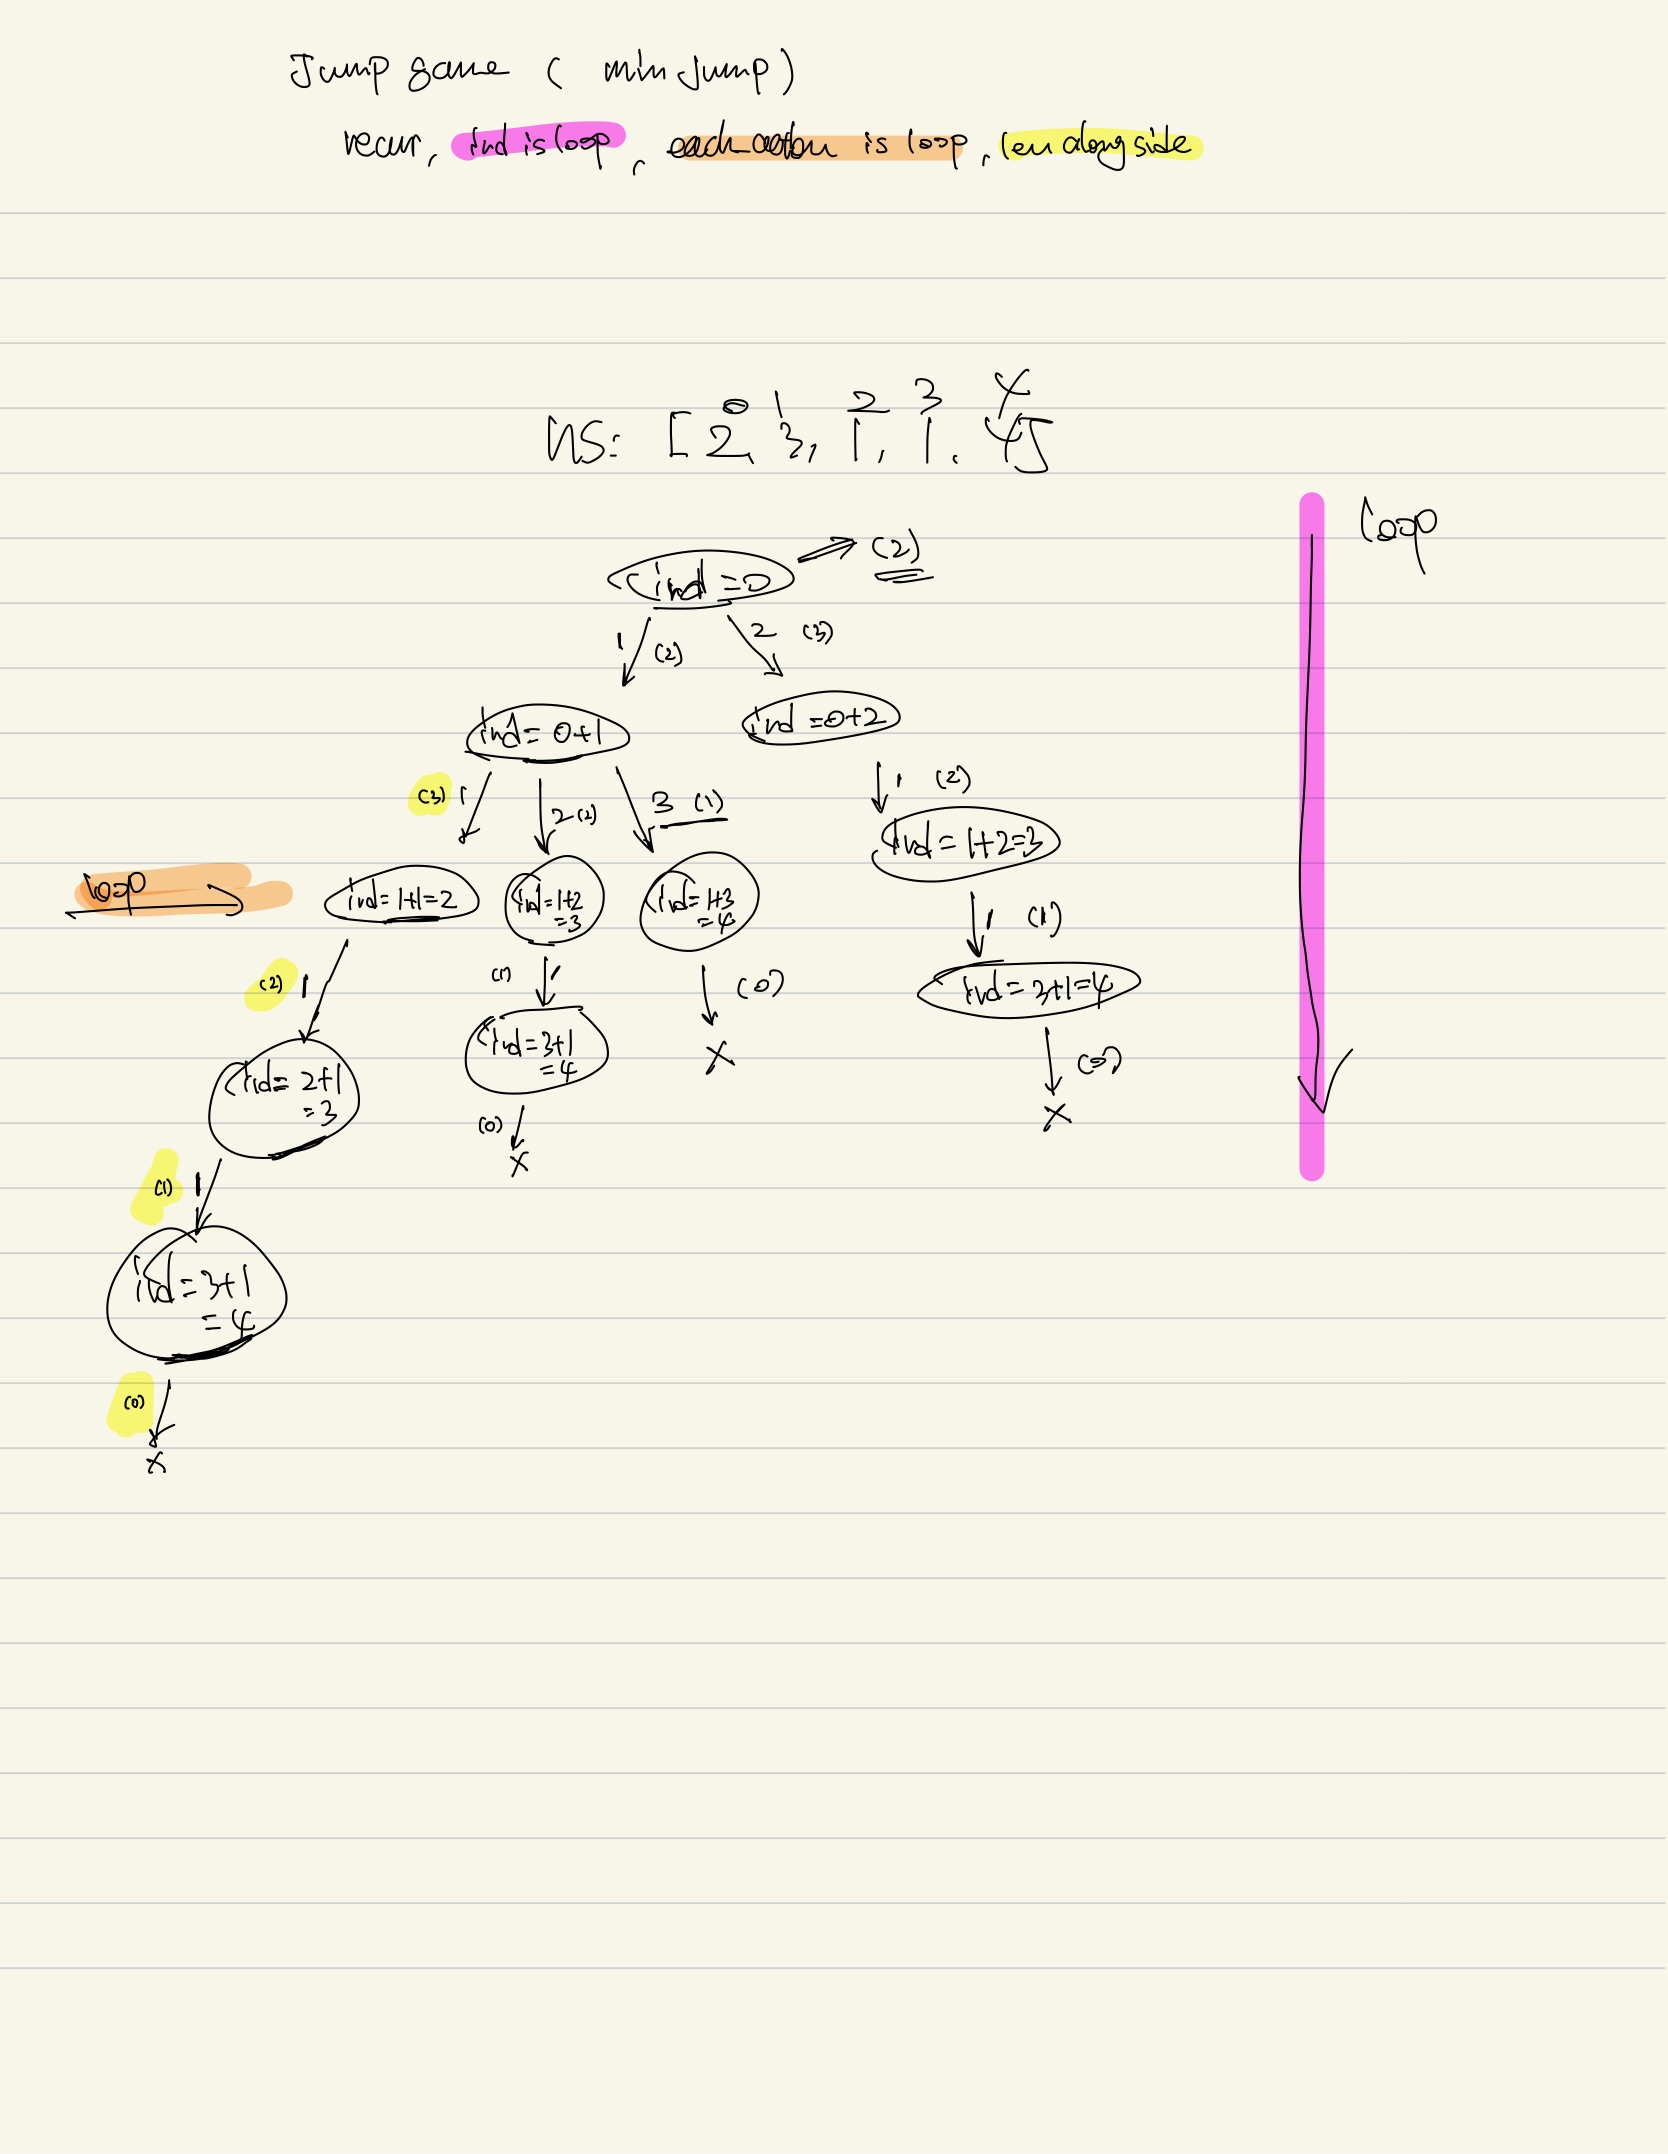 Jump game ( min jump)
recur, ind is loop, each action is loop, len alongside
0 1 2 3 4
NS: [2, 3, 1, 1, 4]
loop
ind = 0 (2)
1 (2) 2 (3)
ind = 0+1 ind = 0+2
(3) 1 2 (2) 3 (1) 1 (2)
ind = 1+2=3
loop ind = 1+1=2 ind = 1+2 ind = 1+3
= 3 = 4
1 (1)
(2) 1 (1) 1 (0) ind = 3+1=4
ind = 3+1
= 4
X
ind = 2+1
= 3
(0)
X
(0)
X
(1) 1
ind = 3+1
= 4
(0)
X